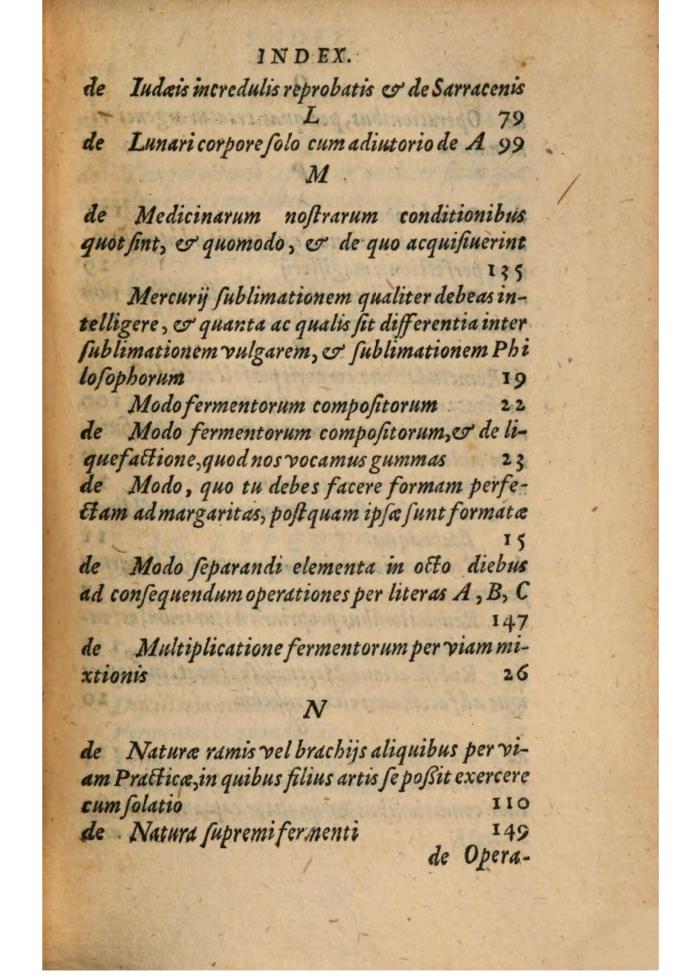 INDEX.
de Iudæis incredulis reprobatis & de Sarracenis
L 79
de Lunari corpore ſolo cum adiutorio de A 99
M
de Medicinarum noſtrarum conditionibus
quot ſint, & quomodo, & de quo acquiſiuerint
135
Mercurij ſublimationem qualiter debeas in-
telligere, & quanta ac qualis ſit differentia inter
ſublimationem vulgarem, & ſublimationem Phi
loſophorum 19
Modo fermentorum compoſitorum 22
de Modo fermentorum compoſitorum, & de li-
quefactione, quod nos vocamus gummas 23
de Modo, quo tu debes facere formam perfe-
ctam ad margaritas, poſtquam ipſæ ſunt formatæ
15
de Modo ſeparandi elementa in octo diebus
ad conſequendum operationes per literas A, B, C
147
de Multiplicatione fermentorum per viam mi-
xtionis 26
N
de Naturæ ramis vel brachijs aliquibus per vi-
am Practicæ, in quibus filius artis ſe poßit exercere
cum ſolatio 110
de Natura ſupremi fermenti 149
de Opera-